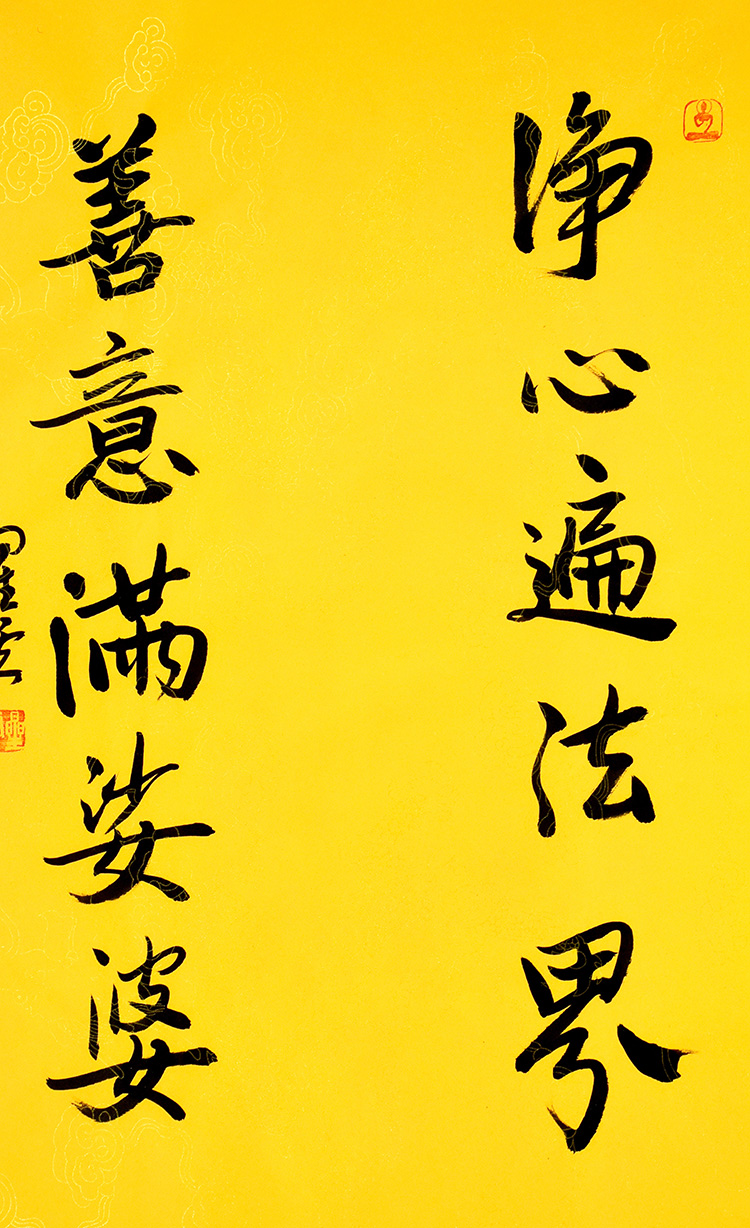 净心遍法界
善意满娑婆